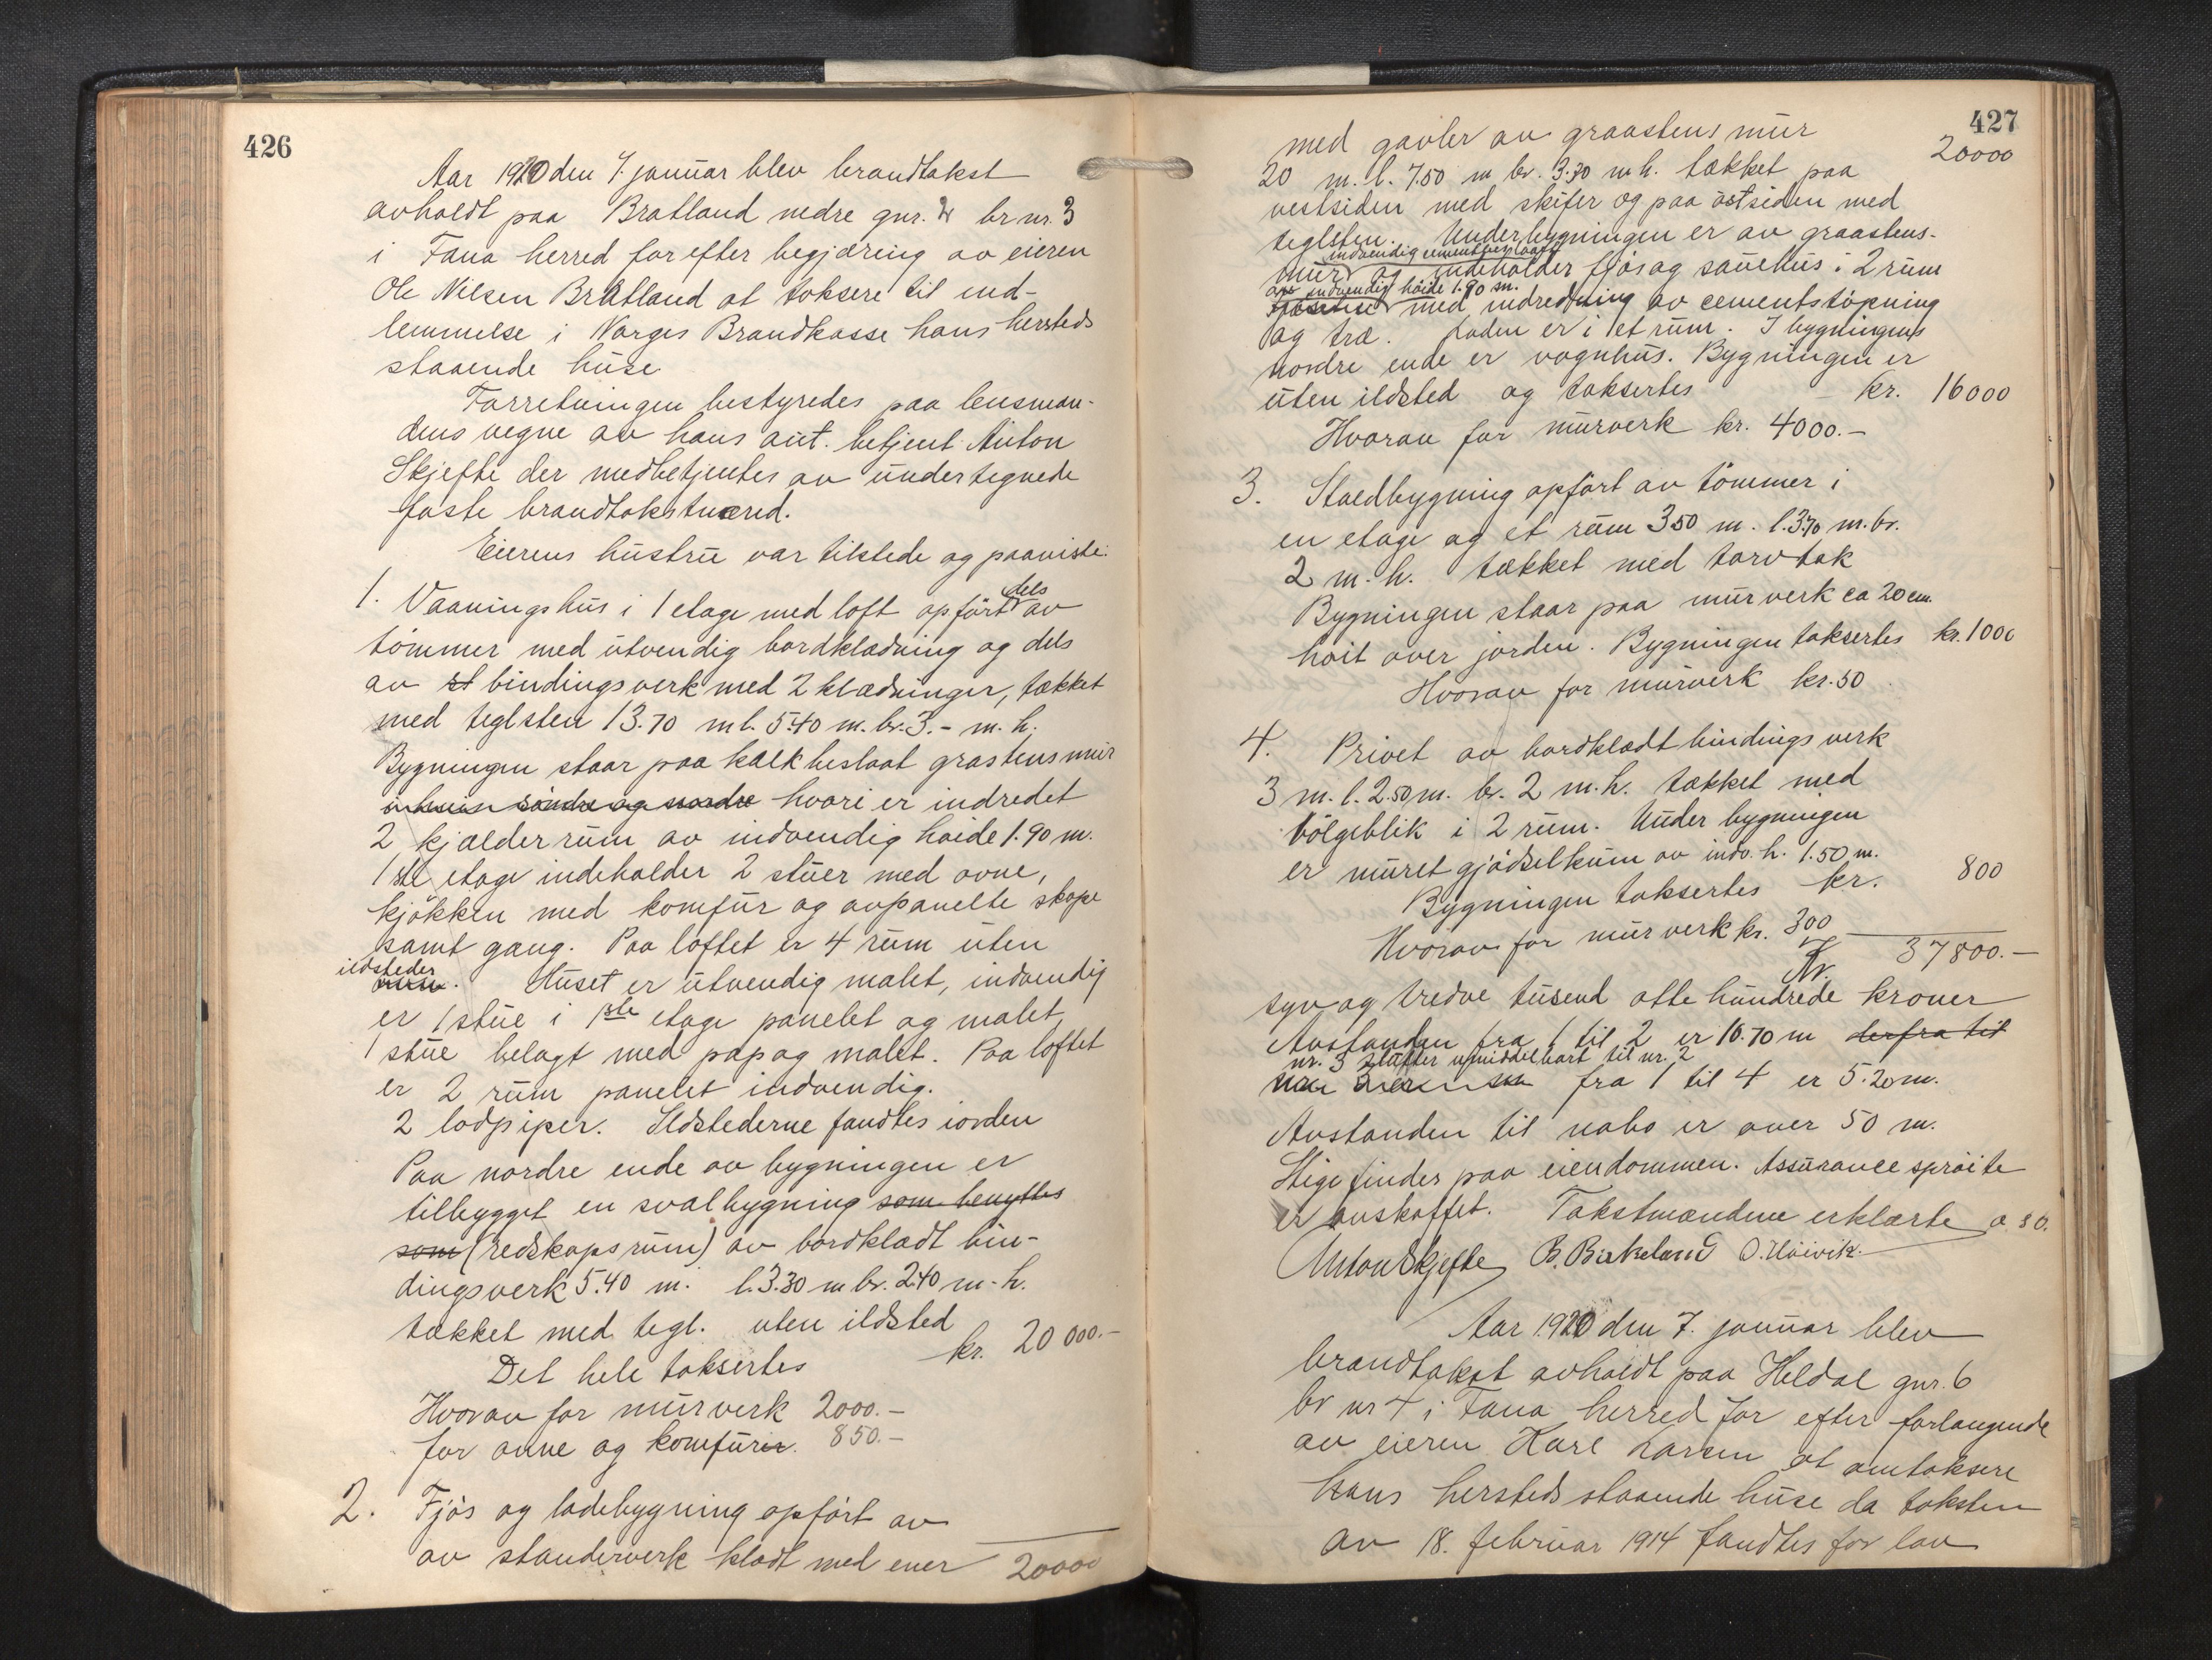 426
Aar 1920 den 7. januar blev brandtakst
avholdt paa Bratland nedre gnr. br nr. 3
i Fana herred for efter begjæring av eieren
Ole Nilsen Bratland at taksere til ind-
lemmelse i Norges Brandkasse hans hersteds
staaende huse
Forretningen bestyredes paa lensman-
dens vegne av hans aut. betjent Anton
Skjefte der medbetjentes av undertegnede
faste brandtakstmænd.
Eierens hustru var tilstede og paaviste:
1. Vaaningshus i 1 etage med loft opført dels av
tømmer med utvendig bordklædning og dels
av bindingsverk med 2 klædninger, tækket
med teglsten 13.70 m l. 5.40 m. br. 3.- m. h.
Bygningen staar paa kalkbeslaat grastensmur
søndre og nordre hvori er indredet
2 kjælderrum av indvendig høide 1.90 m.
1ste etage indeholder 2 stuer med ovne,
kjøkken med komfur og avpanelte skape
samt gang. Paa loftet er 4 rum uten
ildsteder
. Huset er utvendig malet, indvendig
er 1 stue i 1ste etage panelet og malet,
1 stue belagt med pap og malet. Paa loftet
er 2 rum panelet indvendig.
2 lodpiper. Ildstederne fandtes iorden
Paa nordre ende av bygningen er
tilbygget en svalbygning som benyttes
som (redskapsrum) av bordklædt bin-
dingsverk 5.40 m. l. 3.30 m br. 2.40 m. h.
tækket med tegl. uten ildsted
Det hele taksertes kr. 20 000.-
Hvorav for murverk 2000.-
for ovne og komfurer. 850.-
2. Fjøs og ladebygning opført av
av standerverk klædt med ener 20000
427
med gavler av graastens mur 20000
20 m. l. 7.50 m br. 3.30 m h. tækket paa
vestsiden med skifer og paa østsiden med
teglsten. Underbygningen er av graastens-
indvendig cementbeslaat
mur og indeholder fjøs og sauehus i 2 rum
av indvendig høide 1.90 m.
med indredning av cementstøpning
og træ. Laden er i et rum. I bygningens
nordre ende er vognhus. Bygningen er
uten ildsted og taksertes kr. 16000
Hvorav for murverk kr. 4000.-
3. Staedbygning opført av tømmer i
en etage og et rum 350 m. l. 3.70 m. br.
2 m. h. tækket med torvtak
Bygningen staar paa murverk ca 20 cm.
høit over jorden. Bygningen taksertes kr. 1000
Hvorav for murverk kr. 50
4. Privet av bordklædt bindingsverk
3 m. l. 2.50 m. br. 2 m. h. tækket med
bølgeblik i 2 rum. Under bygningen
er muret gjødselkum av indv. h. 1.50 m.
Bygningen taksertes kr. 800
Hvorav for murverk kr. 300
Kr. 37800.-
syv og tredve tusend otte hundrede kroner
Avstanden fra 1 til 2 er 10.70 m derfra til
nr. 3 støter umiddelbart til nr. 2
fra 1 til 4 er 5.20 m.
Avstanden til nabo er over 50 m.
Stige findes paa eiendommen. Assurancesprøite
er anskaffet. Takstmændene erklærte o. s. v.
Anton Skjefte B. Birkeland O. Høivik.
Aar 1920 den 7. januar blev
brandtakst avholdt paa Heldal gnr. 6
br nr 4 i Fana herred for efter forlangende
av eieren Karl Larsen at omtaksere
hans hersteds staaende huse da taksten
av 18. februar 1914 fandtes for lav